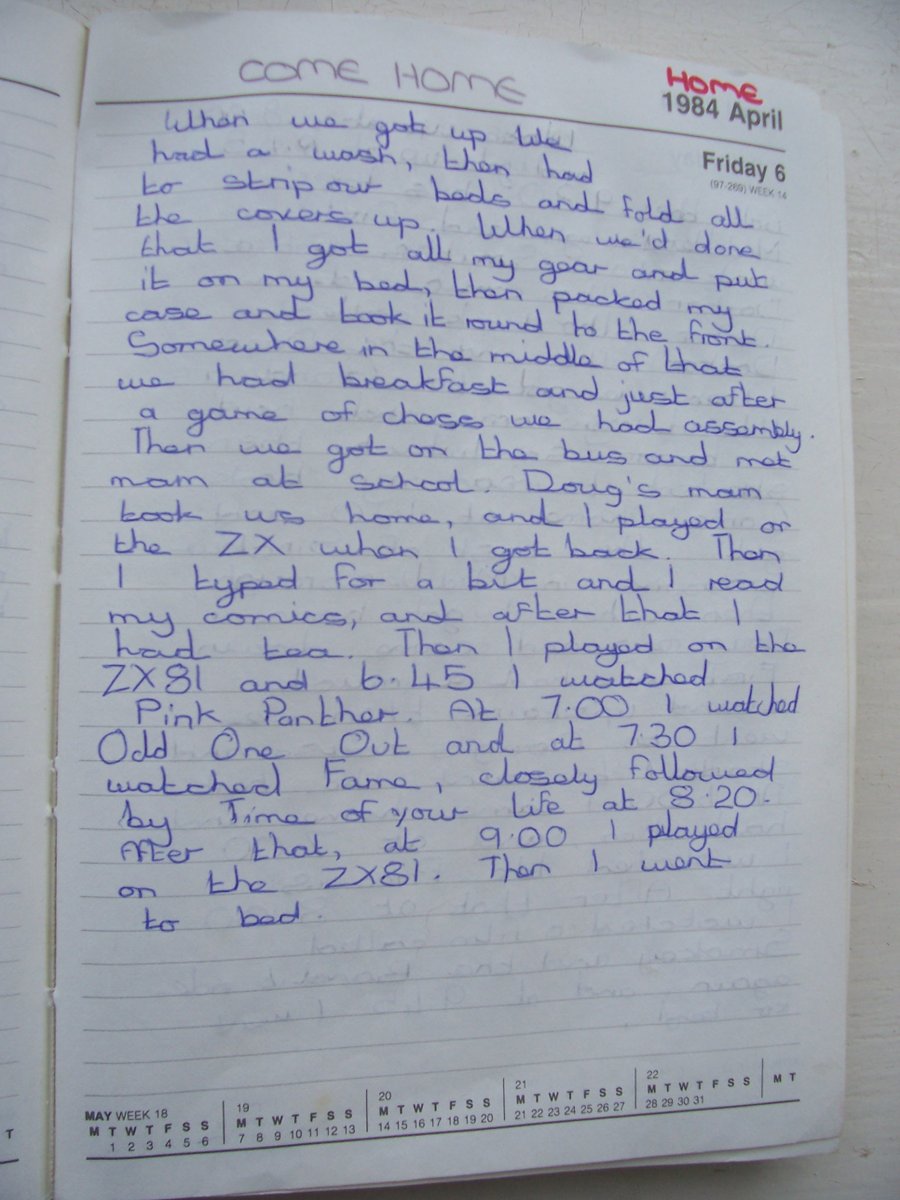 COME HOME
HOME
1984 April
Friday 6
(97-269) WEEK 14
When we got up We
had a wash, then had
to strip our beds and fold all
the covers up. When we'd done
that I got all my gear and put
it on my bed, then packed my
case and took it round to the front.
Somewhere in the middle of that
we had breakfast and just after
a game of chess we had assembly.
Then we got on the bus and met
mam at school. Doug's mam
took us home, and I played on
the ZX when I got back. Then
I typed for a bit and I read
my comics, and after that I
had tea. Then I played on the
ZX81 and 6.45 I watched
Pink Panther. At 7.00 I watched
Odd One Out and at 7.30 I
watched Fame, closely followed
by Time of your Life at 8.20.
After that, at 9.00 I played
on the ZX81. Then I went
to bed.
MAY WEEK 18 19 20 21 22
M T W T F S S M T W T F S S M T W T F S S M T W T F S S M T W T F S S M T
1 2 3 4 5 6 7 8 9 10 11 12 13 14 15 16 17 18 19 20 21 22 23 24 25 26 27 28 29 30 31
T